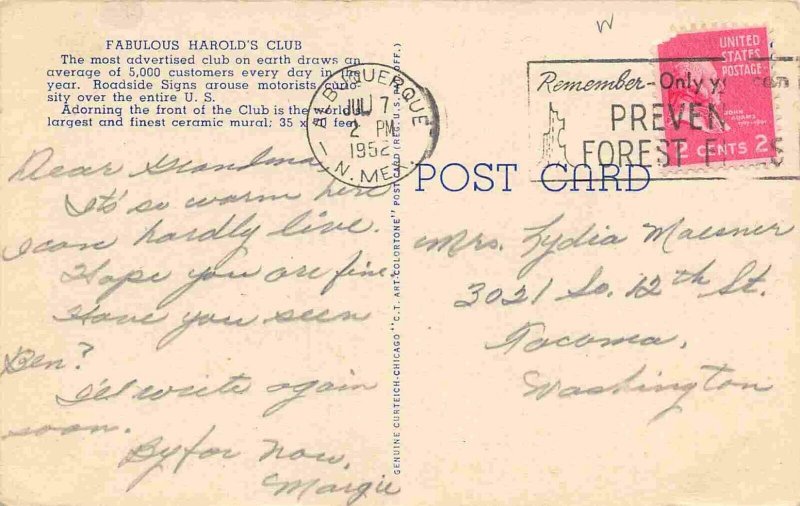 FABULOUS HAROLD'S CLUB
The most advertised club on earth draws an
average of 5,000 customers every day in the
year. Roadside Signs arouse motorists curio-
sity over the entire U. S.
Adorning the front of the Club is the world's
largest and finest ceramic mural; 35 x 70 feet.
Dear Grandma,
It's so warm here
I can hardly live.
Hope you are fine.
Have you seen
Ben?
I'll write again
soon.
By for now,
Margie
GENUINE CURTEICH-CHICAGO "C.T. ART-COLORTONE" POST CARD (REG. U.S. PAT. OFF.)
ALBUQUERQUE
JUL 7
2 PM
1952
N. MEX.
W
Remember-Only you can
PREVENT
FOREST FIRES
UNITED
STATES
POSTAGE
JOHN
ADAMS
2 CENTS 2
POST CARD
Mrs. Lydia Maesner
3021 So. 12th St.
Tacoma,
Washington